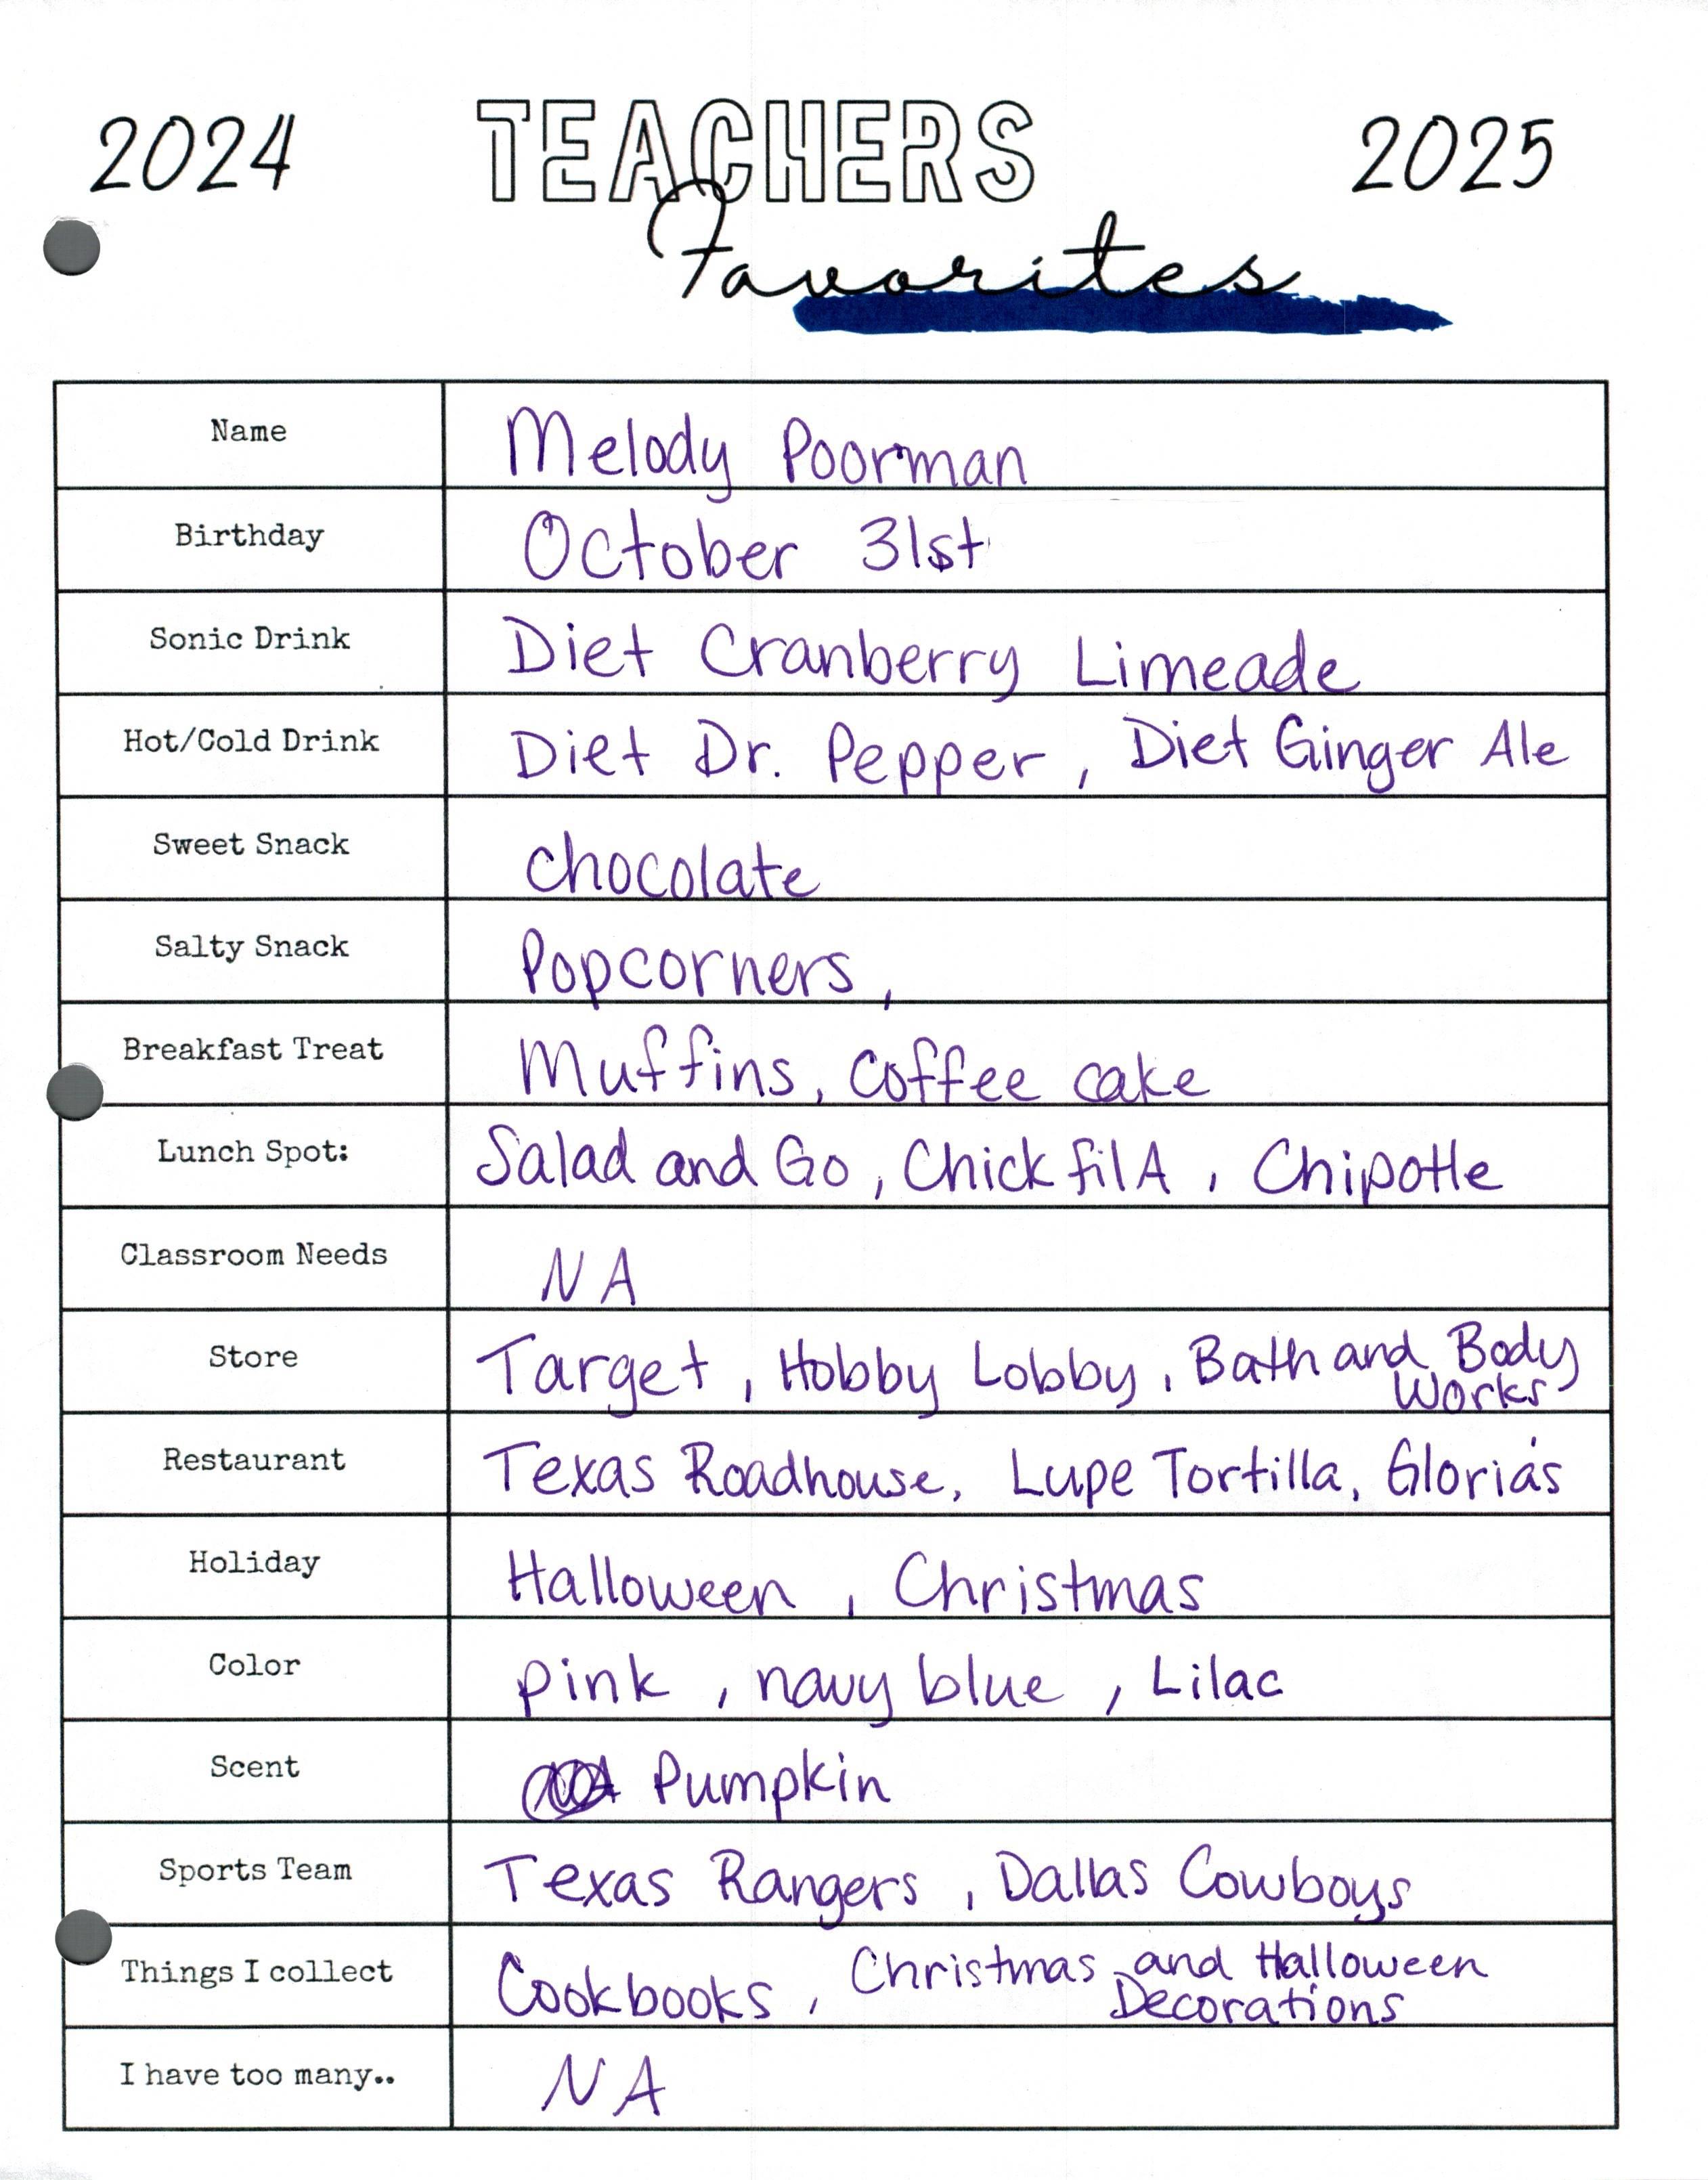 2024 TEACHERS 2025
Favorites
Name Melody Poorman
Birthday October 31st
Sonic Drink Diet Cranberry Limeade
Hot/Cold Drink Diet Dr. Pepper, Diet Ginger Ale
Sweet Snack chocolate
Salty Snack Popcorners,
Breakfast Treat Muffins, coffee cake
Lunch Spot: Salad and Go, Chick fil A, Chipotle
Classroom Needs NA
Store Target, Hobby Lobby, Bath and Body
Works
Restaurant Texas Roadhouse, Lupe Tortilla, Gloria's
Holiday Halloween, Christmas
Color pink, navy blue, Lilac
Scent Pumpkin
Sports Team Texas Rangers, Dallas Cowboys
Things I collect Cookbooks, Christmas and Halloween
Decorations
I have too many.. NA